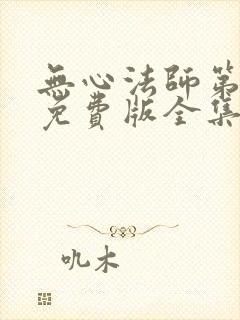 無心法師第
免費版全集
吼木